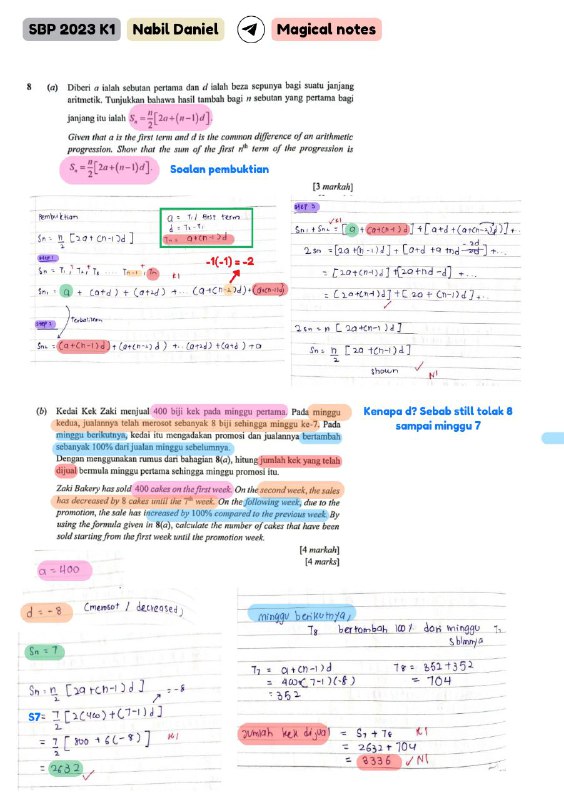 SBP 2023 K1 Nabil Daniel Magical notes
8 (a) Diberi a ialah sebutan pertama dan d ialah beza sepunya bagi suatu janjang
aritmetik. Tunjukkan bahawa hasil tambah bagi n sebutan yang pertama bagi
janjang itu ialah Sₙ = n/2[2a+(n−1)d].
Given that a is the first term and d is the common difference of an arithmetic
progression. Show that the sum of the first nᵗʰ term of the progression is
Sₙ = n/2[2a+(n−1)d]. Soalan pembuktian
[3 markah]
Pembuktian
Sn = n/2 [2a + (n-1)d]
a = T1 / first term
d = T2 - T1
Tn = a+(n-1)d
Step 1
-1(-1) = -2
Sn = T1 + T2 + T3 ... Tn-1 + Tn K1
Sn1 = a + (a+d) + (a+2d) + ... (a+(n-2)d) + (a+(n-1)d)
Step 2 Terbalikkan
Sn2 = (a+(n-1)d) + (a+(n-2)d) + ... (a+2d) + (a+d) + a
Step 3
Sn1 + Sn2 = [a + (a+(n-1)d] + [a+d + (a+(n-2)d)] + ..
K1
2Sn = [2a+(n-1)d] + [a+d +a +nd -2d] + ...
= [2a+(n-1)d] + [2a+nd-d] + ...
= [2a+(n-1)d] + [2a + (n-1)d] ...
2Sn = n [2a+(n-1)d]
Sn = n/2 [2a+(n-1)d]
shown N1
(b) Kedai Kek Zaki menjual 400 biji kek pada minggu pertama. Pada minggu
kedua, jualannya telah merosot sebanyak 8 biji sehingga minggu ke-7. Pada
minggu berikutnya, kedai itu mengadakan promosi dan jualannya bertambah
sebanyak 100% dari jualan minggu sebelumnya.
Dengan menggunakan rumus dari bahagian 8(a), hitung jumlah kek yang telah
dijual bermula minggu pertama sehingga minggu promosi itu.
Kenapa d? Sebab still tolak 8
sampai minggu 7
Zaki Bakery has sold 400 cakes on the first week. On the second week, the sales
has decreased by 8 cakes until the 7ᵗʰ week. On the following week, due to the
promotion, the sale has increased by 100% compared to the previous week. By
using the formula given in 8(a), calculate the number of cakes that have been
sold starting from the first week until the promotion week.
[4 markah]
[4 marks]
a = 400
d = -8 (merosot / decreased)
Sn = 7
Sn = n/2 [2a + (n-1)d] = -8
S7= 7/2 [2(400) + (7-1)d]
= 7/2 [800 + 6(-8)] K1
= 2632
minggu berikutnya,
T8 bertambah 100% dari minggu T7
sblmnya
T7 = a+(n-1)d
= 400(7-1)(-8)
= 352
T8 = 352+352
= 704
Jumlah kek dijual = S7 + T8 K1
= 2632 + 704
= 3336 N1